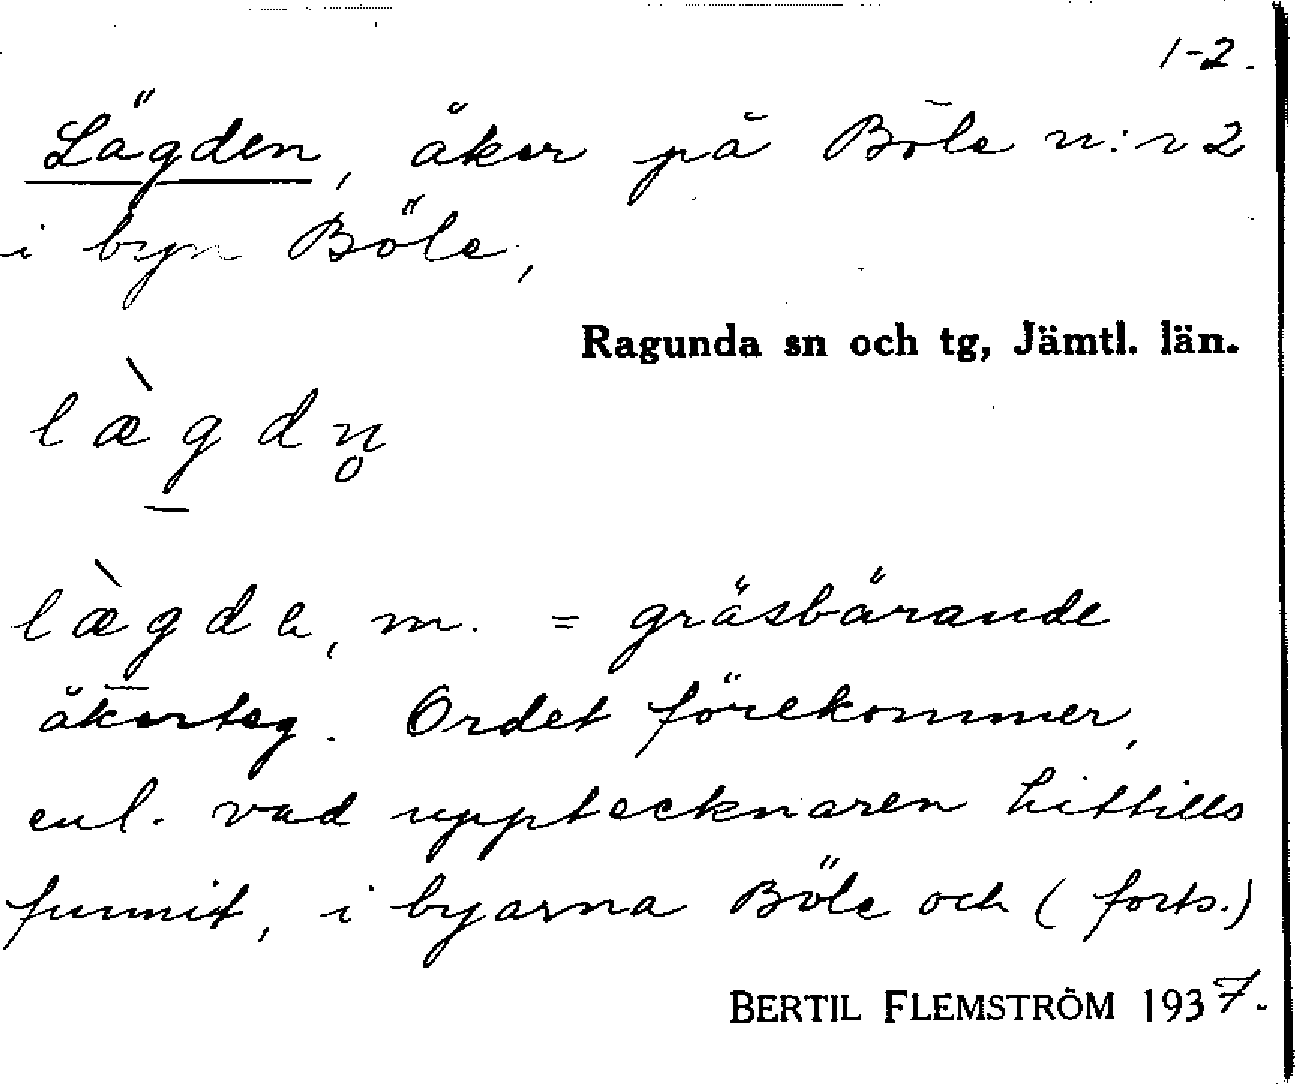 1-2.
Lägden, åker på Böle n:r 2
i byn Böle,
Ragunda sn och tg, Jämtl. län.
læ̀gdn̥
læ̀gda, m. = gräsbärande
åkerteg. Ordet förekommer,
enl. vad upptecknaren hittills
funnit, i byarna Böle och (forts.)
BERTIL FLEMSTRÖM 1937.